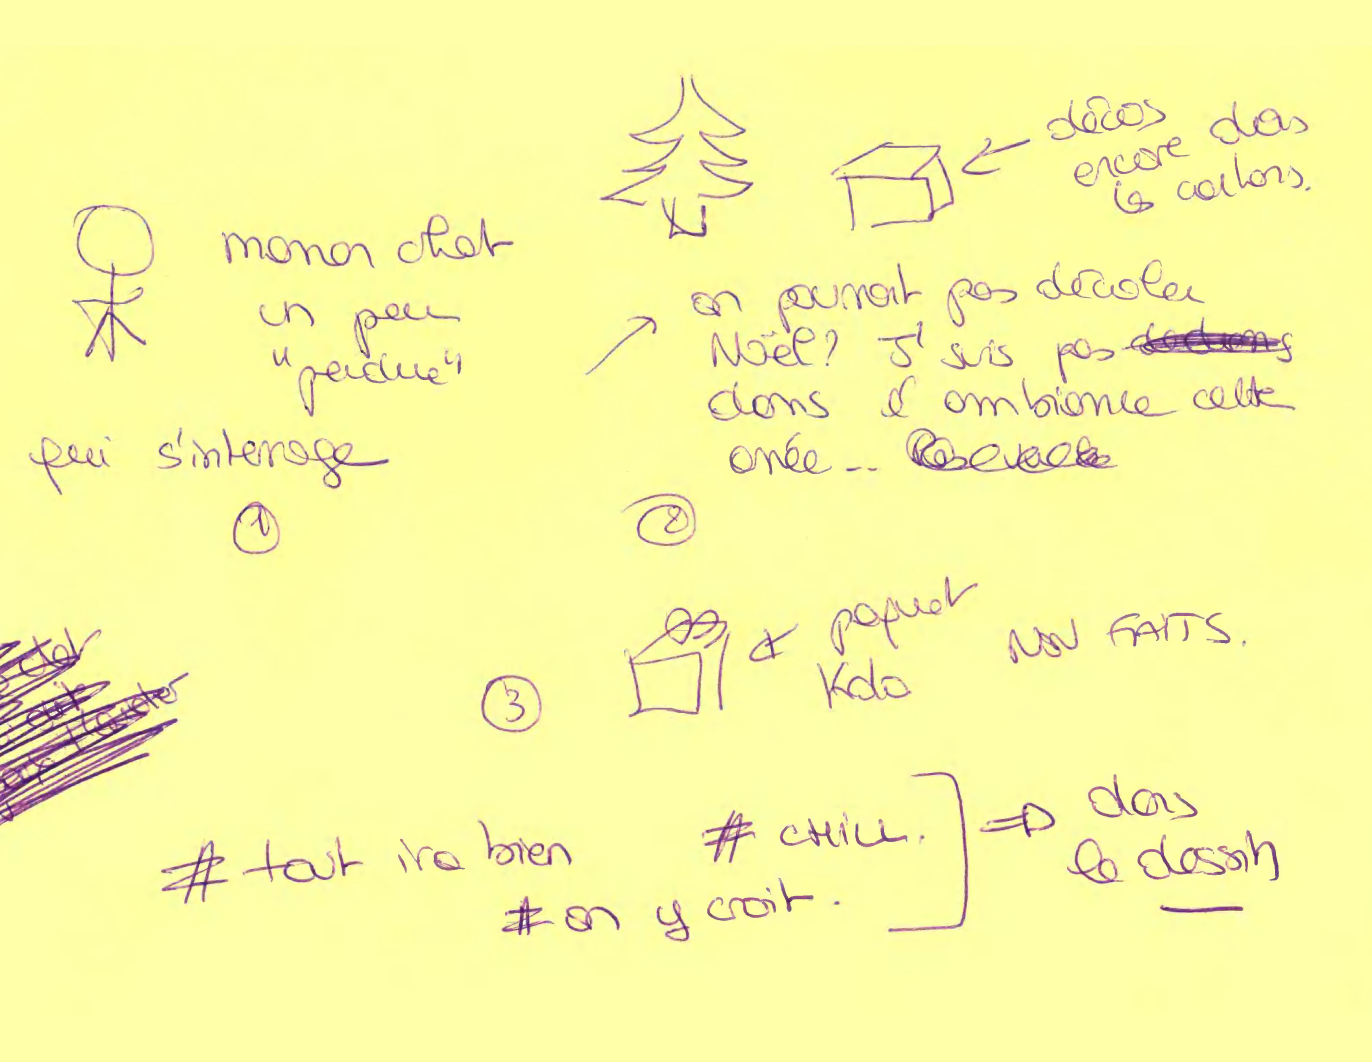 maman chat
un peu
"perdue"
qui s'interroge
①
décos
encore dans
les cartons.
on pourrait pas décaler
Noël? J'suis pas
dans l'ambiance cette
année...
②
③
paquet
Kdo
NON FAITS.
# tout ira bien
# CHILL.
# on y croit.
⇒ dans
le dessin